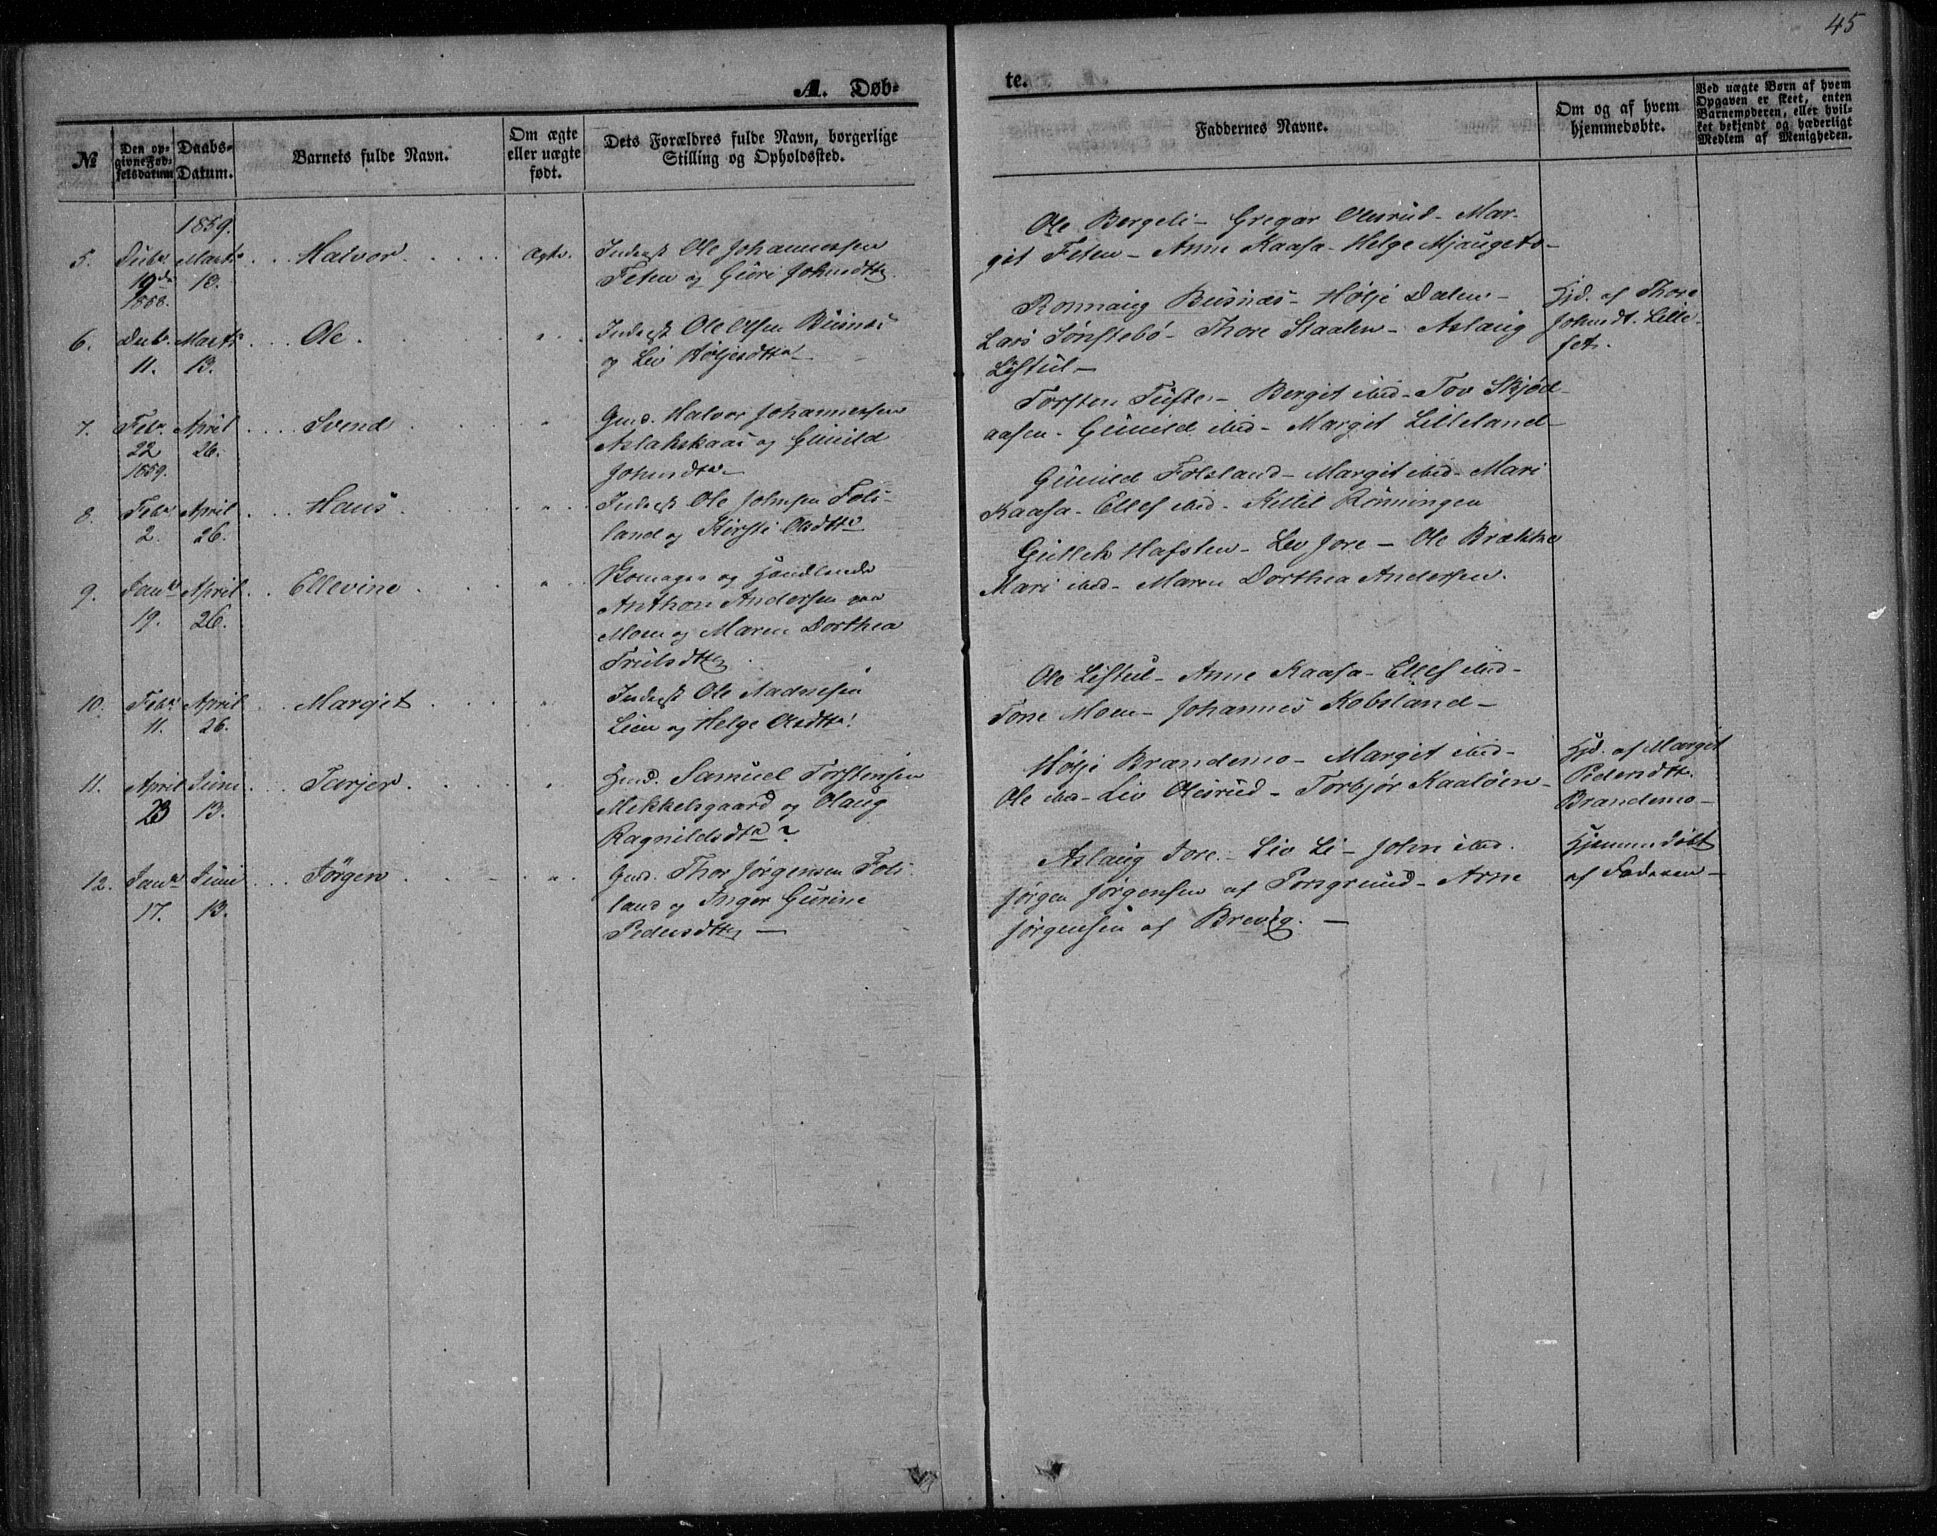 45
A. Døb-
te.
№
Den op-
givne Fød-
selsdatum
Daabs-
Datum.
Barnets fulde Navn.
Om ægte
eller uægte
født.
Dets Forældres fulde Navn, borgerlige
Stilling og Opholdssted.
Faddernes Navne.
Om og af hvem
hjemmedøbte.
Ved uægte Børn af hvem
Opgaven er skeet, enten
Barnemoderen, eller hvil-
ket bekjendt og hæderligt
Medlem af Menigheden.
1859.
5. Decbr. Marts Halvor Ægte. Inderst Ole Johannessen
19de 13. Feten og Guro Johnsdtr
1858.
Ole Bergeli - Gregar Olesrud - Mar-
git Feten - Anne Kaasa - Helge
6. Decbr. Marts Ole. " Inderst Ole Olsen Busnæs
11. 13. og Liv Høljesdtr
Ronnaug Busnæs - Hølje Dalen -
Lars Sønstebö - Thore Staalen - Aslaug
Løstul -
Hjd. af Thore
Johnsdt. Lille-
set.
7. Febr. April Svend " Gmd. Halvor Johannessen
22 26. Aslakskaas og Gunild
1859. Johnsdtr -
Torsten Tufte - Bergit ibid - Tov Skjød-
aasen - Gunild ibid - Margit Lilleland -
8. Febr. April Hans " Inderst Ole Johnsen Fols-
2. 26. land og Kirsti Olsdtr
Gunild Folsland - Margit ibid - Mari
Kaasa - Ellef ibid - Kittil Rönningen
9. Janr April Ellevine " Skomager og Handlende
19. 26. Anthon Andersen paa
Moen og Maren Dorthea
Trulsdtr
Gullek Hafsten - Lev Jore - Ole Brække
Mari ibid - Maren Dorthea Andersen.
10. Febr April Margit " Inderst Ole Aadnesen
11. 26. Lien og Helge Olsdtr
Ole Løstul - Anne Kaasa - Ellef ibid -
Tone Moen - Johannes Kobsland -
11. April Juni Torjer " Gmd. Samuel Torstensen
23 13. Mikkelsgaard og Olaug
Ragnildsdtr?
Hølje Brandemo - Margit ibid -
Ole ibid - Liv Olesrud - Torbjør Kaaløen -
Hjd. af Margit
Pedersdtr.
Brandemo -
12. Janr Juni Jörgen " Gmd. Thor Jörgensen Fols-
17. 13. land og Inger Gurine
Pedersdtr -
Aslaug Jore - Liv Li - John ibid.
Jörgen Jörgensen af Porsgrund - Arne
Jörgensen af Brevig. -
Hjemmedöbt
af Faderen -